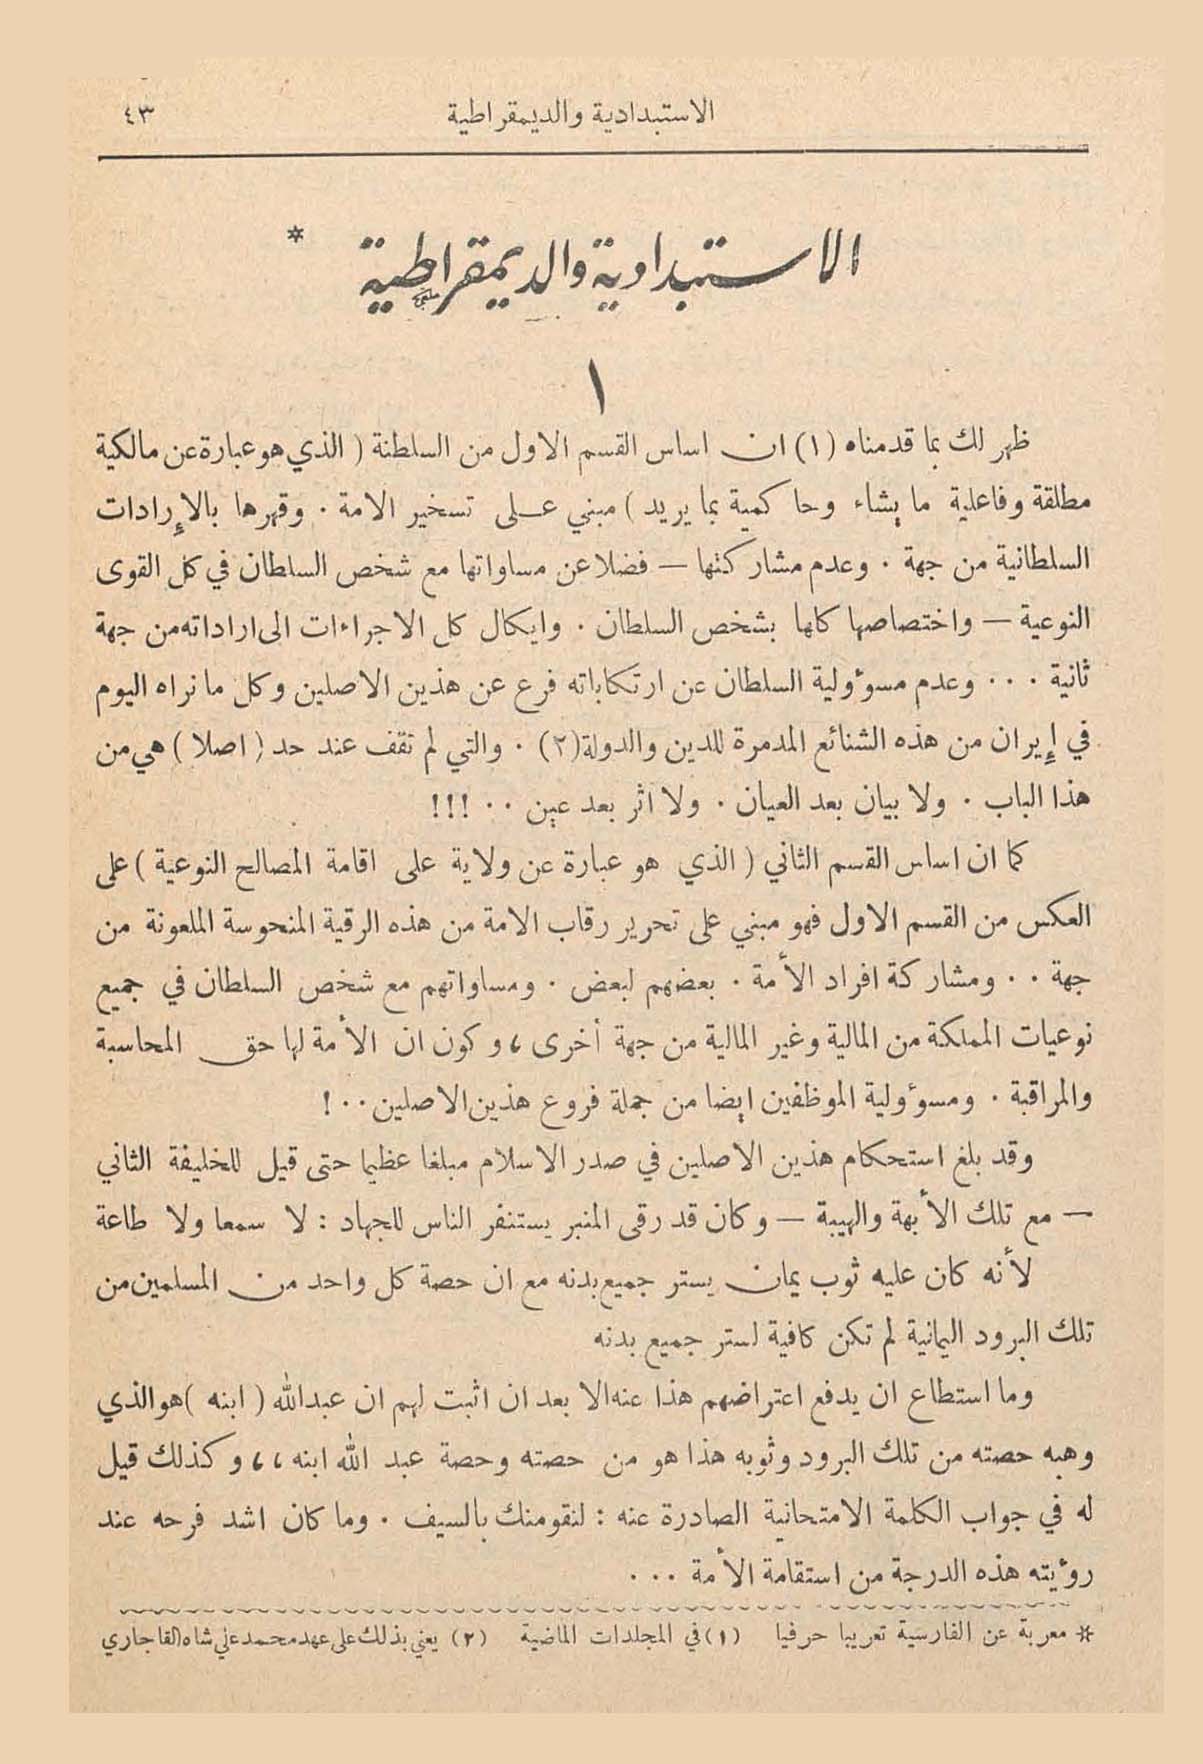 الاستبدادية والديمقراطية
٤٣
الاستبدادية والديمقراطية *
١
ظهر لك بما قدمناه (١) ان اساس القسم الاول من السلطنة ( الذي هو عبارة عن مالكية
مطلقة وفاعلية ما يشاء وحاكمية بما يريد ) مبني على تسخير الامة . وقهرها بالإرادات
السلطانية من جهة . وعدم مشاركتها — فضلا عن مساواتها مع شخص السلطان في كل القوى
النوعية — واختصاصها كلها بشخص السلطان . وايكال كل الاجراءات الى اراداته من جهة
ثانية . . . وعدم مسوءولية السلطان عن ارتكاباته فرع عن هذين الاصلين وكل ما نراه اليوم
في إيران من هذه الشنائع المدمرة للدين والدولة (٢) . والتي لم تقف عند حد ( اصلا ) هي من
هذا الباب . ولا بيان بعد العيان . ولا اثر بعد عين . . !!!
كما ان اساس القسم الثاني ( الذي هو عبارة عن ولاية على اقامة المصالح النوعية ) على
العكس من القسم الاول فهو مبني على تحرير رقاب الامة من هذه الرقية المنحوسة الملعونة من
جهة . . ومشاركة افراد الأمة . بعضهم لبعض . ومساواتهم مع شخص السلطان في جميع
نوعيات المملكة من المالية وغير المالية من جهة أخرى ، وكون ان الأمة لها حق المحاسبة
والمراقبة . ومسوءولية الموظفين ايضا من جملة فروع هذين الاصلين . . !
وقد بلغ استحكام هذين الاصلين في صدر الاسلام مبلغا عظيما حتى قيل للخليفة الثاني
— مع تلك الأبهة والهيبة — وكان قد رقى المنبر يستنفر الناس للجهاد : لا سمعا ولا طاعة
لأنه كان عليه ثوب يمان يستر جميع بدنه مع ان حصة كل واحد من المسلمين من
تلك البرود اليمانية لم تكن كافية لستر جميع بدنه
وما استطاع ان يدفع اعتراضهم هذا عنه الا بعد ان اثبت لهم ان عبدالله ( ابنه ) هو الذي
وهبه حصته من تلك البرود وثوبه هذا هو من حصته وحصة عبد الله ابنه ،، وكذلك قيل
له في جواب الكلمة الامتحانية الصادرة عنه : لنقومنك بالسيف . وما كان اشد فرحه عند
روءيته هذه الدرجة من استقامة الأمة . . .
* معربة عن الفارسية تعريبا حرفيا (١) في المجلدات الماضية (٢) يعني بذلك على عهد محمد علي شاه القاجاري